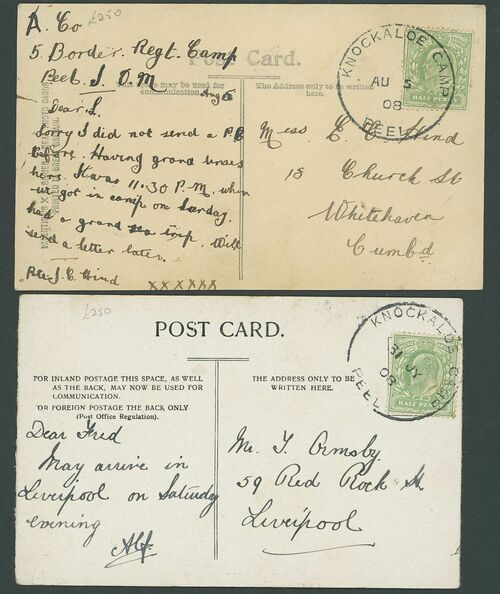 A. Co £250
5. Border. Regt. Camp
Peel. I. O. M
Post Card.
may be used for
communication.
The Address only to be written
here.
KNOCKALOE CAMP
AU 5
08
PEEL
HALF PENNY
Aug 5
Dear L.
Sorry I did not send a P.C
before. Having grand times
here. It was 11.30 P.M. when
we got in camp on Sunday.
had a grand sea trip. Will
send a letter later.
Pte. J. C. Hind
XXXXXX
Miss E. C. Hind
18 Church St
Whitehaven
Cumbd.
£250
POST CARD.
KNOCKALOE CAMP
31 JY
08
PEEL
HALF PENNY
FOR INLAND POSTAGE THIS SPACE, AS WELL
AS THE BACK, MAY NOW BE USED FOR
COMMUNICATION.
FOR FOREIGN POSTAGE THE BACK ONLY
(Post Office Regulation).
THE ADDRESS ONLY TO BE
WRITTEN HERE.
Dear Fred
May arrive in
Liverpool on Saturday
evening
Alf.
Mr. T. Ormsby
59 Red Rock St
Liverpool